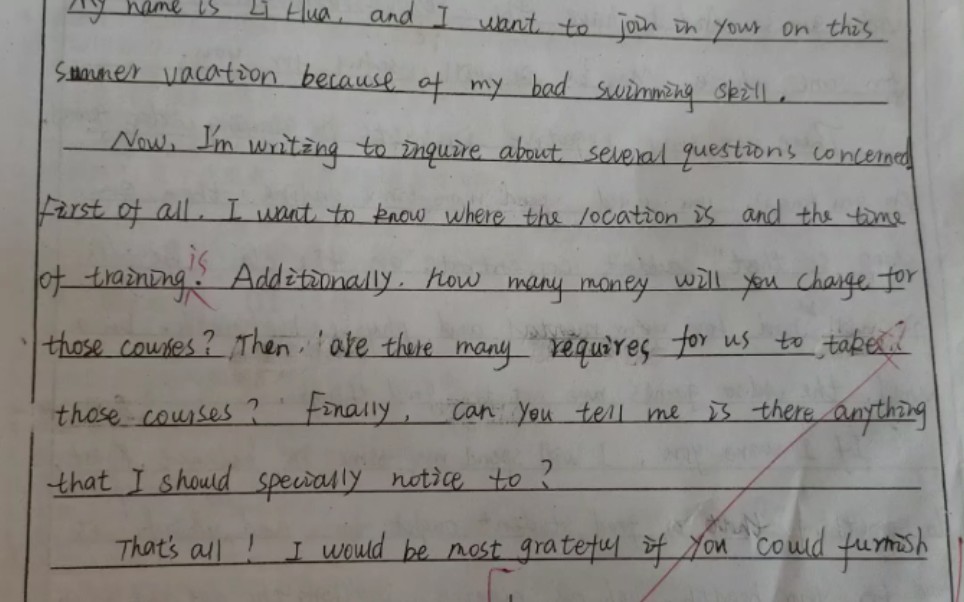 My name is Li Hua, and I want to join in your on this
summer vacation because of my bad swimming skill.
Now, I'm writing to inquire about several questions concerned
First of all. I want to know where the location is and the time
of training is. Additionally. How many money will you charge for
those courses? Then, are there many requires for us to take?
those courses? Finally, can you tell me is there anything
that I should specially notice to?
That's all! I would be most grateful if you could furnish